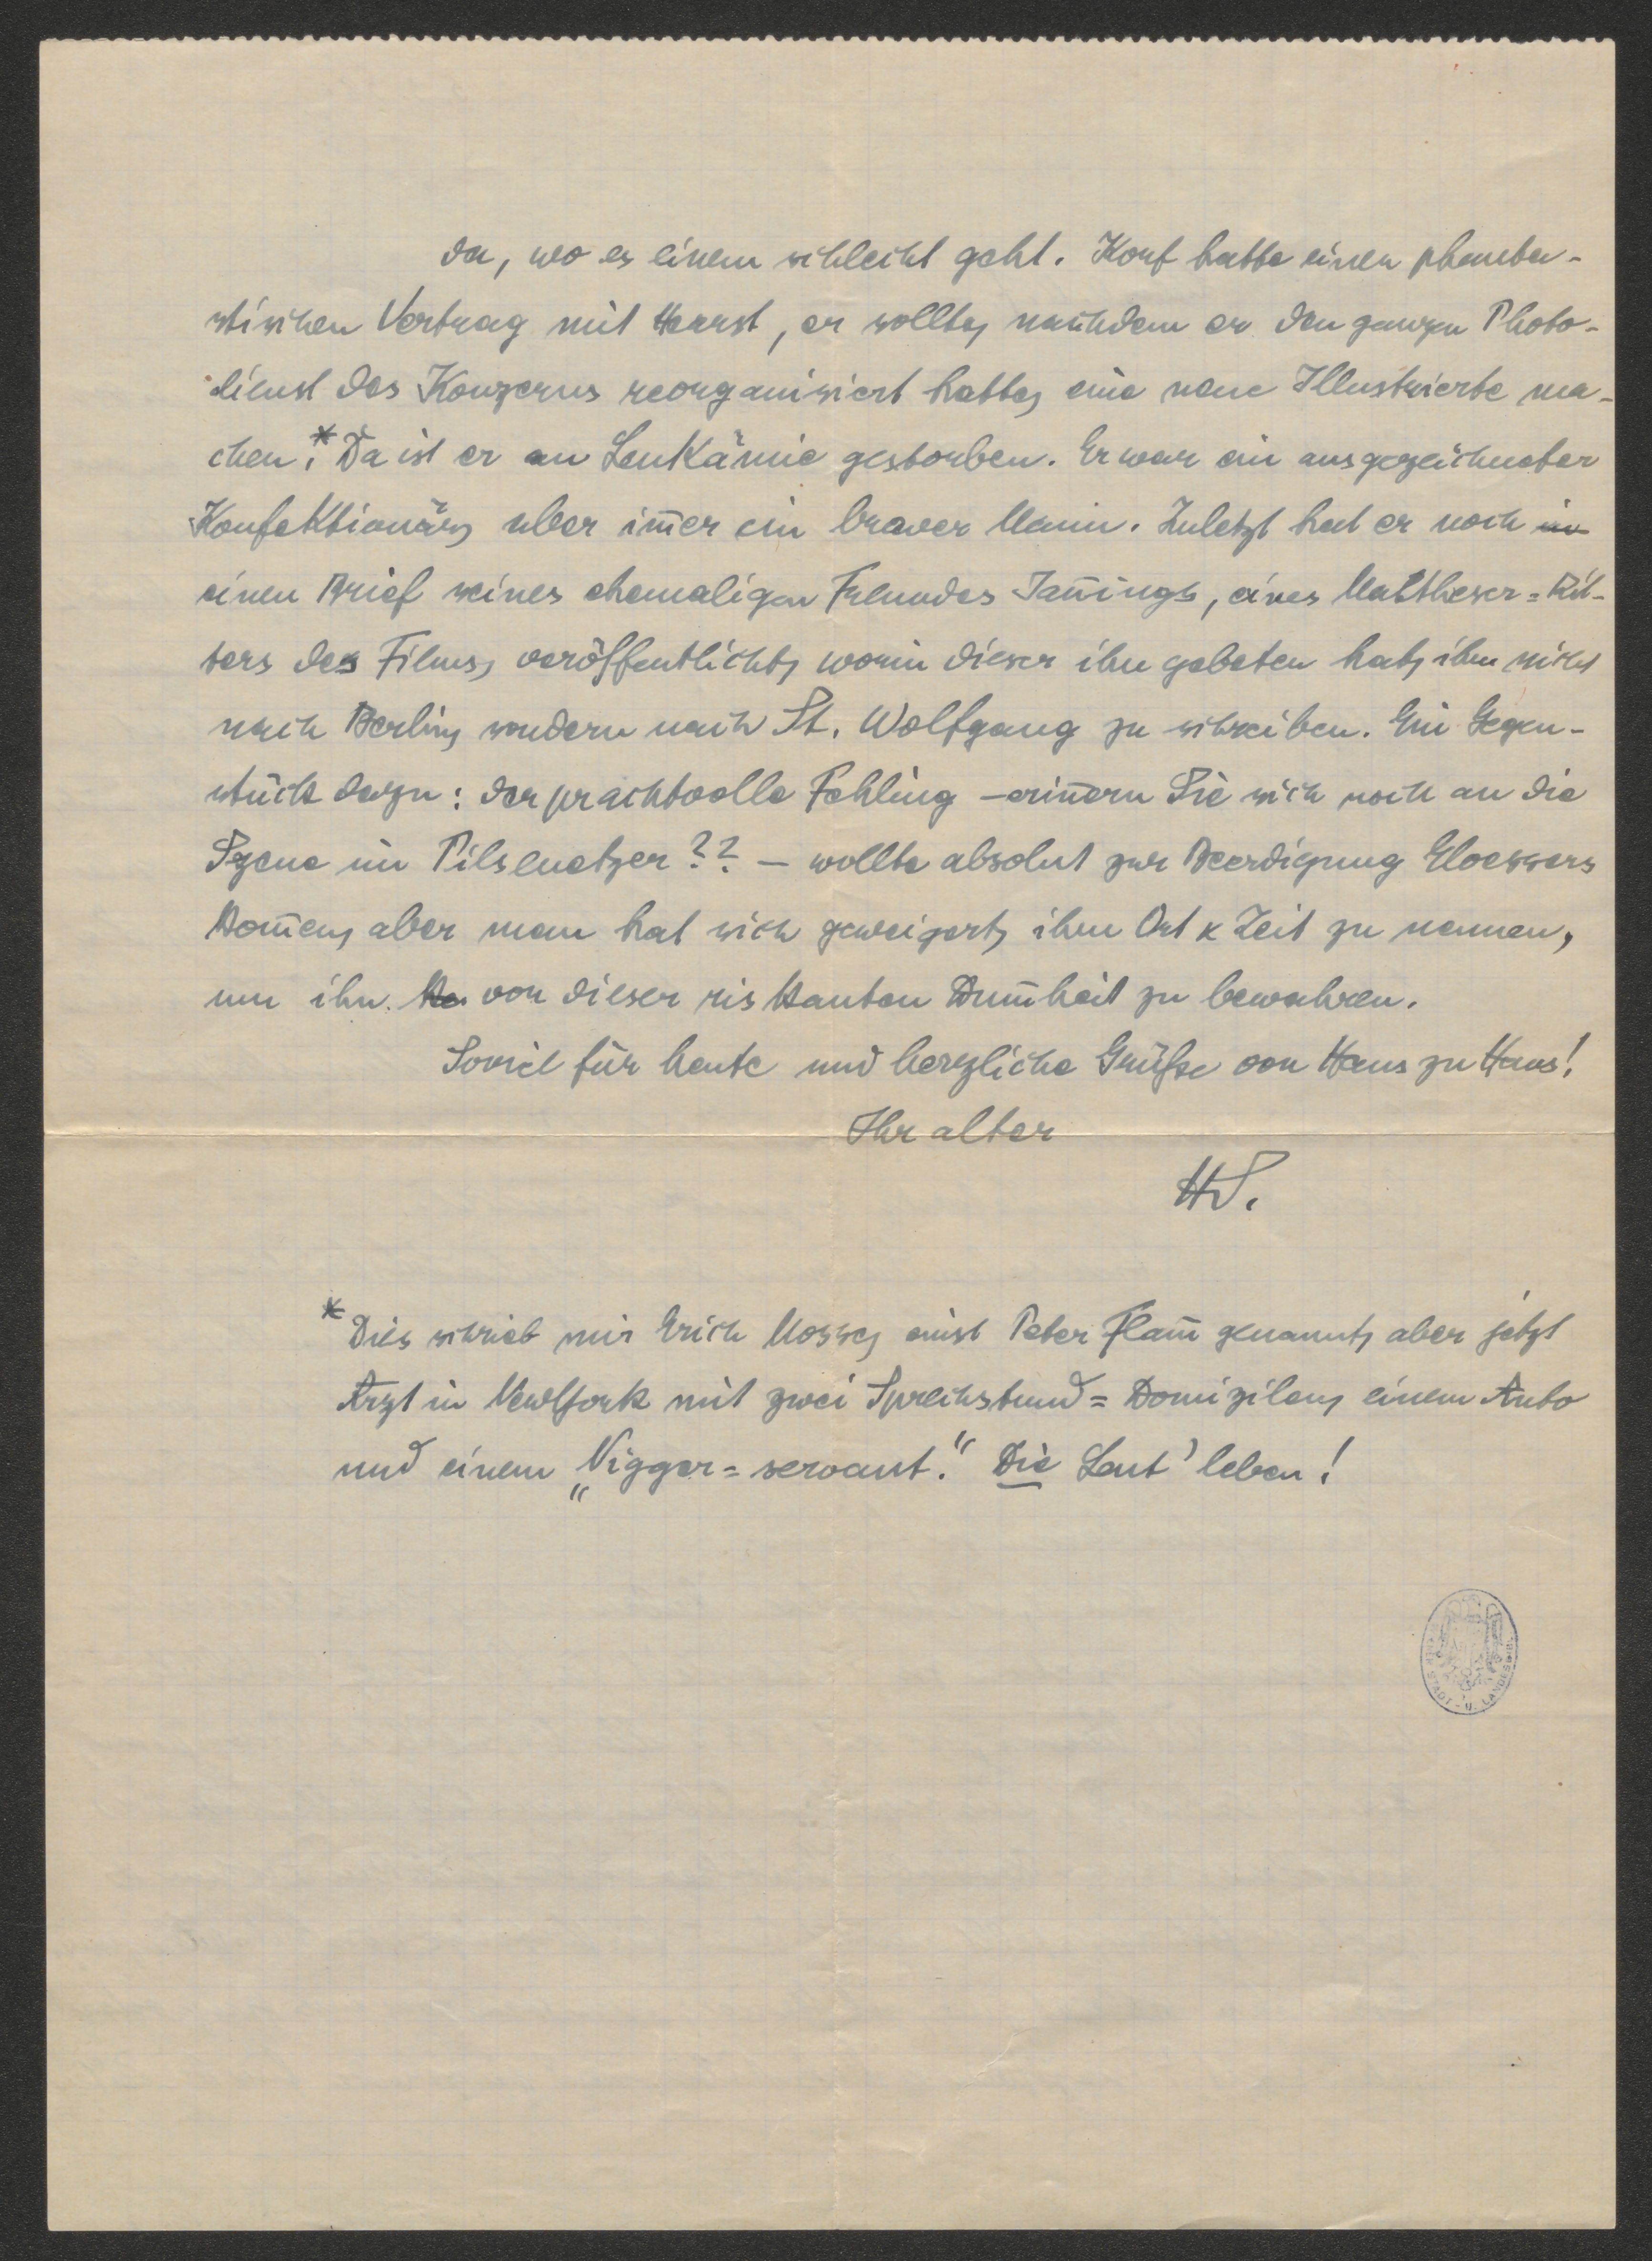 da, wo es einem schlecht geht. Korf hatte einen phanta-
stischen Vertrag mit Hearst, er sollte, nachdem er den ganzen Photo-
dienst des Konzerns reorganisiert hatte, eine neue Illustrierte ma-
chen.* Da ist er an Leukämie gestorben. Er war ein ausgezeichneter
Konfektionär, aber im̄er ein braver Mann. Zuletzt hat er noch in
einen Brief seines ehemaligen Freundes Jan̄ings, eines Maltheser=Rit-
ters des Films, veröffentlicht, worin dieser ihn gebeten hat, ihm nicht
nach Berlin, sondern nach St. Wolfgang zu schreiben. Ein Gegen-
stück dazu: der prachtvolle Fehling – erin̄ern Sie sich noch an die
Szene im Pilsenetzer?? – wollte absolut zur Beerdigung Eloessers
kom̄en, aber man hat sich geweigert, ihm Ort & Zeit zu nennen,
um ihn von dieser riskanten Dum̄heit zu bewahren.
Soviel für heute und herzliche Grüße von Haus zu Haus!
Ihr alter
HS.
* Dies schrieb mir Erich Mosse, einst Peter Flam̄ genannt, aber jetzt
Arzt in NewYork mit zwei Sprechstund=Domizilen, einem Auto
und einem „Nigger=servant.“ Die Leut' leben!
STADT- U. LANDESBIB